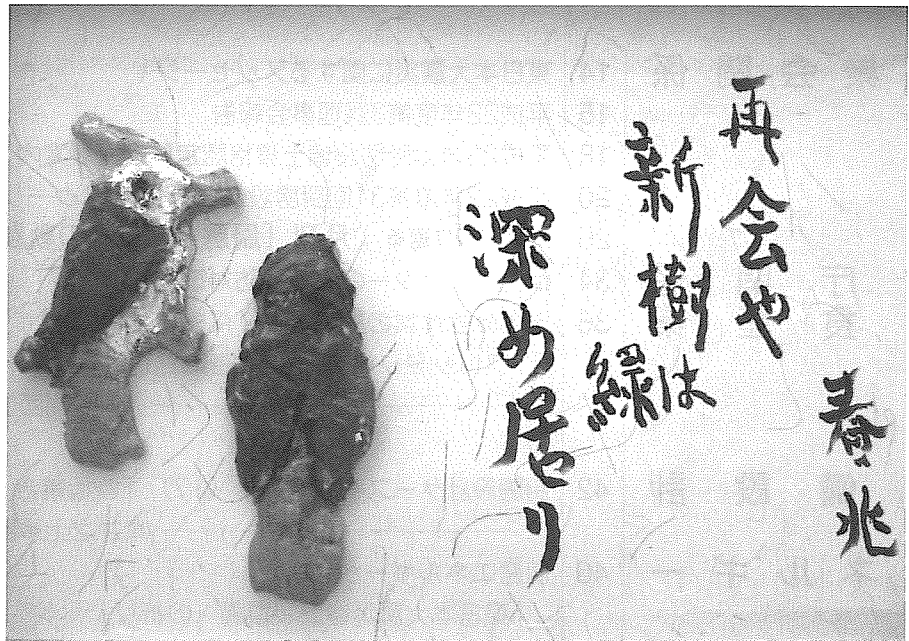 再会や
新樹は
緑
深め居り
春兆